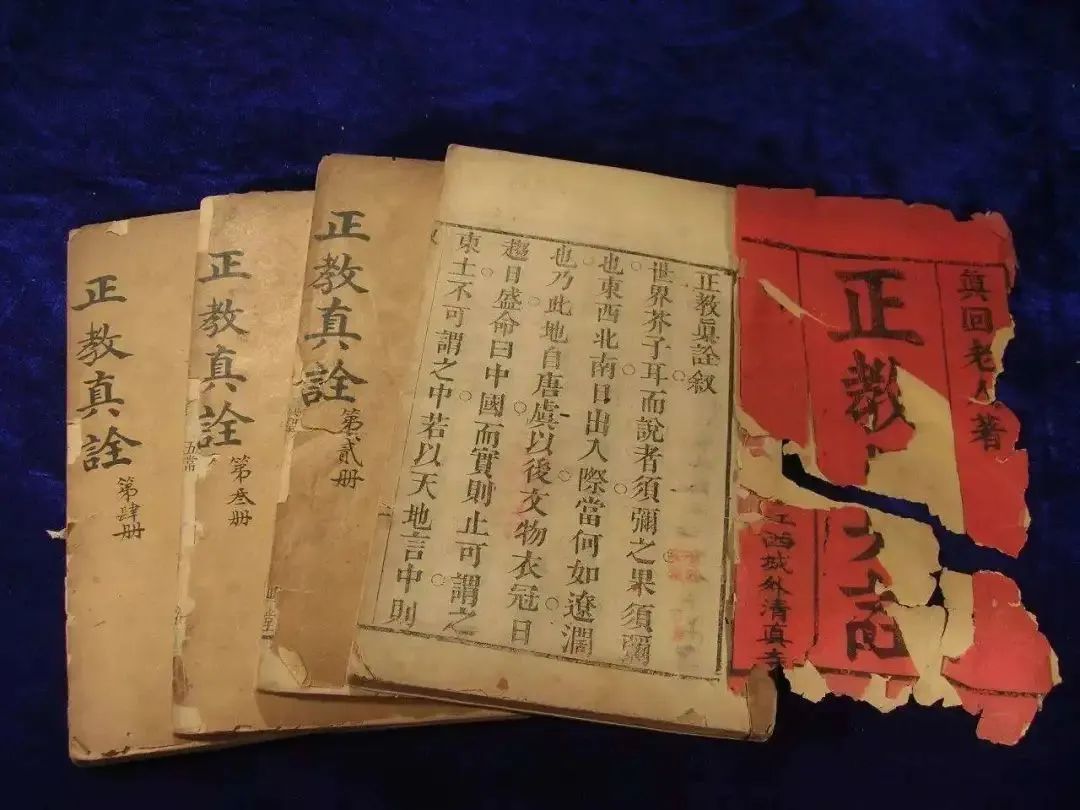 眞回老人著
正教
江西城外清真寺
正教眞詮敘
世界芥子耳而說者須彌之果須彌
也東西北南日出入際當何如遼濶
也乃此地自唐虞以後文物衣冠日
趨日盛命曰中國而實則止可謂之
東土不可謂之中若以天地言中則
正教真詮
第貳册
正教真詮
第叁册
五常
正教真詮
第肆册